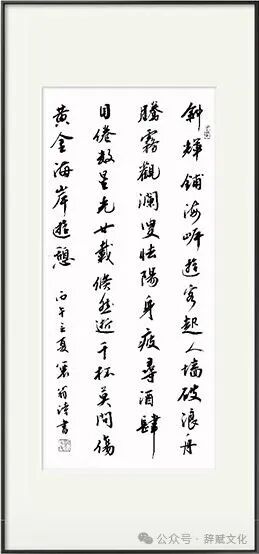 斜輝鋪海岸遊客起人墻破浪舟
騰霧觀瀾叟怯陽身疲尋酒肆
目倦數星光廿載倏然逝千杯莫問傷
黃金海岸遊憩
丙午立夏翁書
公众号·辞赋文化